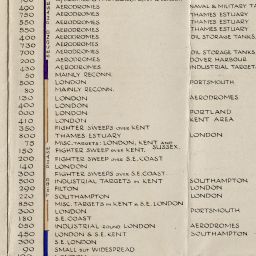 AERODROMES
400 AERODROMES NAVAL & MILITARY
750 AERODROMES THAMES ESTUARY
550 AERODROMES THAMES ESTUARY
550 AERODROMES THAMES ESTUARY
400 AERODROMES OIL STORAGE TANKS
730 AERODROMES
700 AERODROMES OIL STORAGE TANKS
200 AERODROMES DOVER HARBOUR
450 AERODROMES INDUSTRIAL
50 MAINLY RECONN.
500 LONDON PORTSMOUTH
80 MAINLY RECONN.
130 LONDON AERODROMES
400 LONDON
LONDON PORTLAND
410 LONDON KENT AREA
350 FIGHTER SWEEPS OVER KENT
600 THAMES ESTUARY LONDON
75 MISC. TARGETS: LONDON, KENT AND SUSSEX.
150 FIGHTER SWEEP OVER KENT.
200 FIGHTER SWEEP OVER S.E. COAST
140 LONDON
300 FIGHTER SWEEPS OVER S.E. COAST
500 INDUSTRIAL TARGETS IN KENT SOUTHAMPTON
290 FILTON LONDON
220 SOUTHAMPTON LONDON
850 MISC. TARGETS IN KENT & S.E. LONDON
300 LONDON PORTSMOUTH
180 S.E. COAST
650 INDUSTRIAL ROUND LONDON AERODROMES
450 LONDON & S.E. KENT SOUTHAMPTON
300 S.E. LONDON
90 SMALL BUT WIDESPREAD
SECOND PHASE
THIRD PHASE